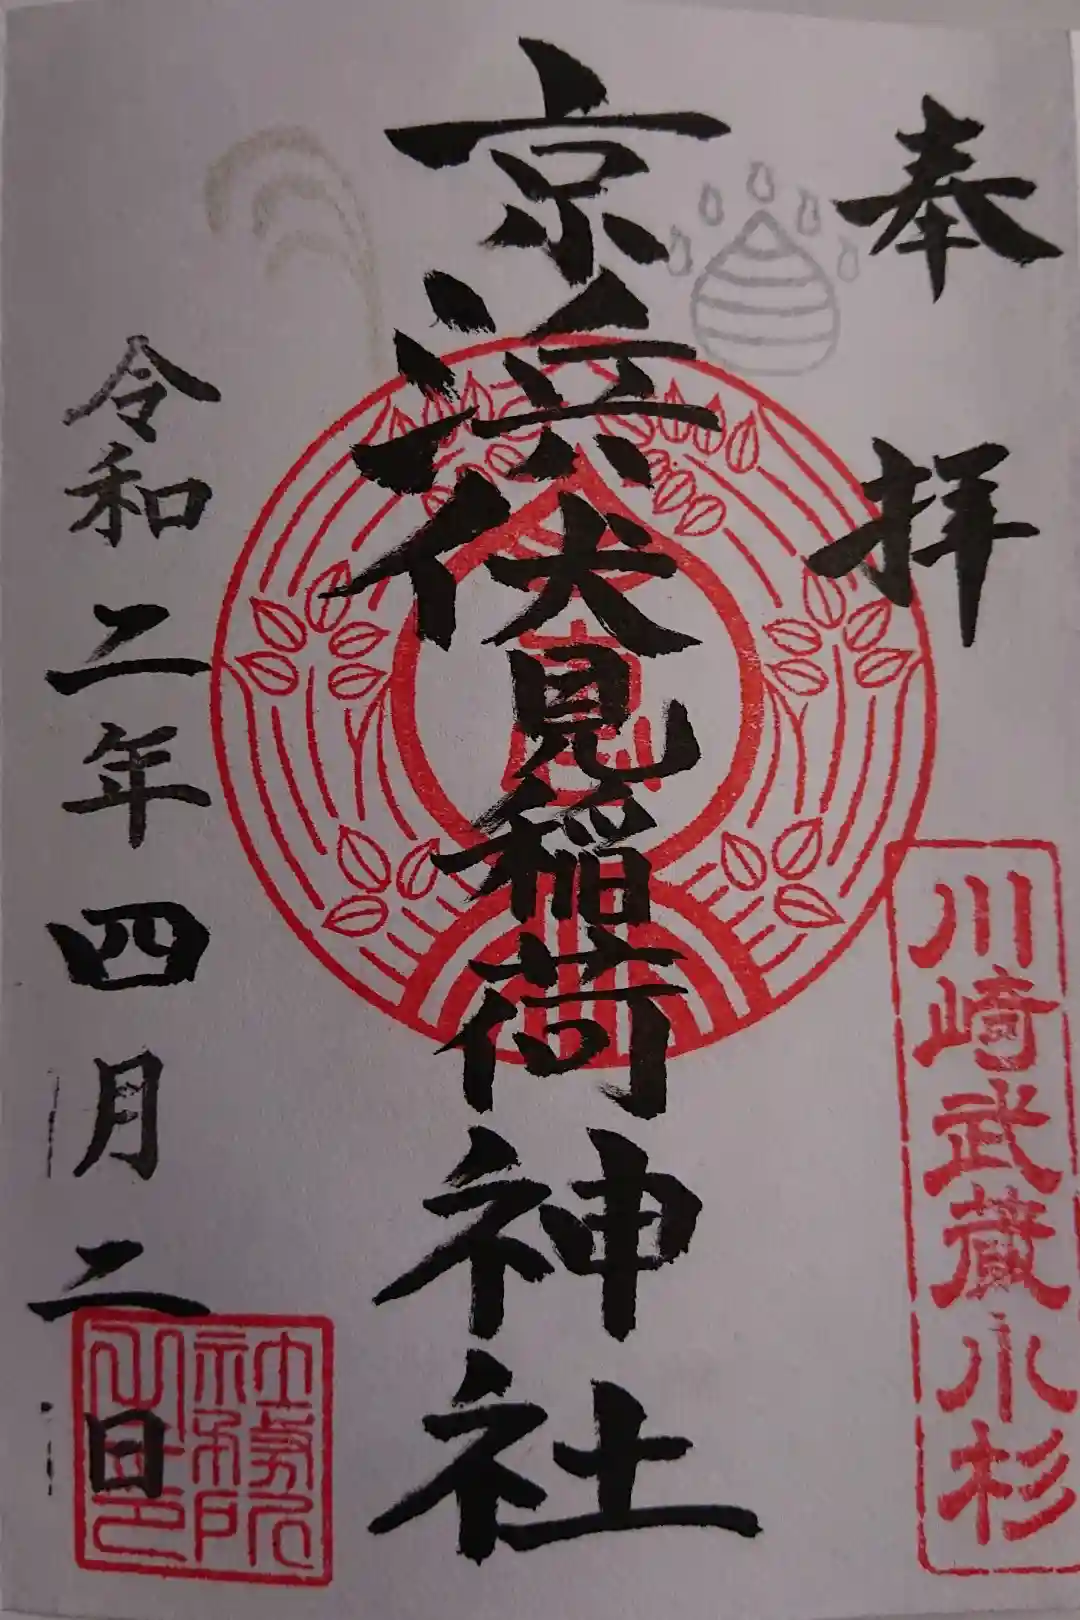 奉拝
川崎武蔵小杉
京浜伏見稲荷神社
令和二年四月二日
社務所之印